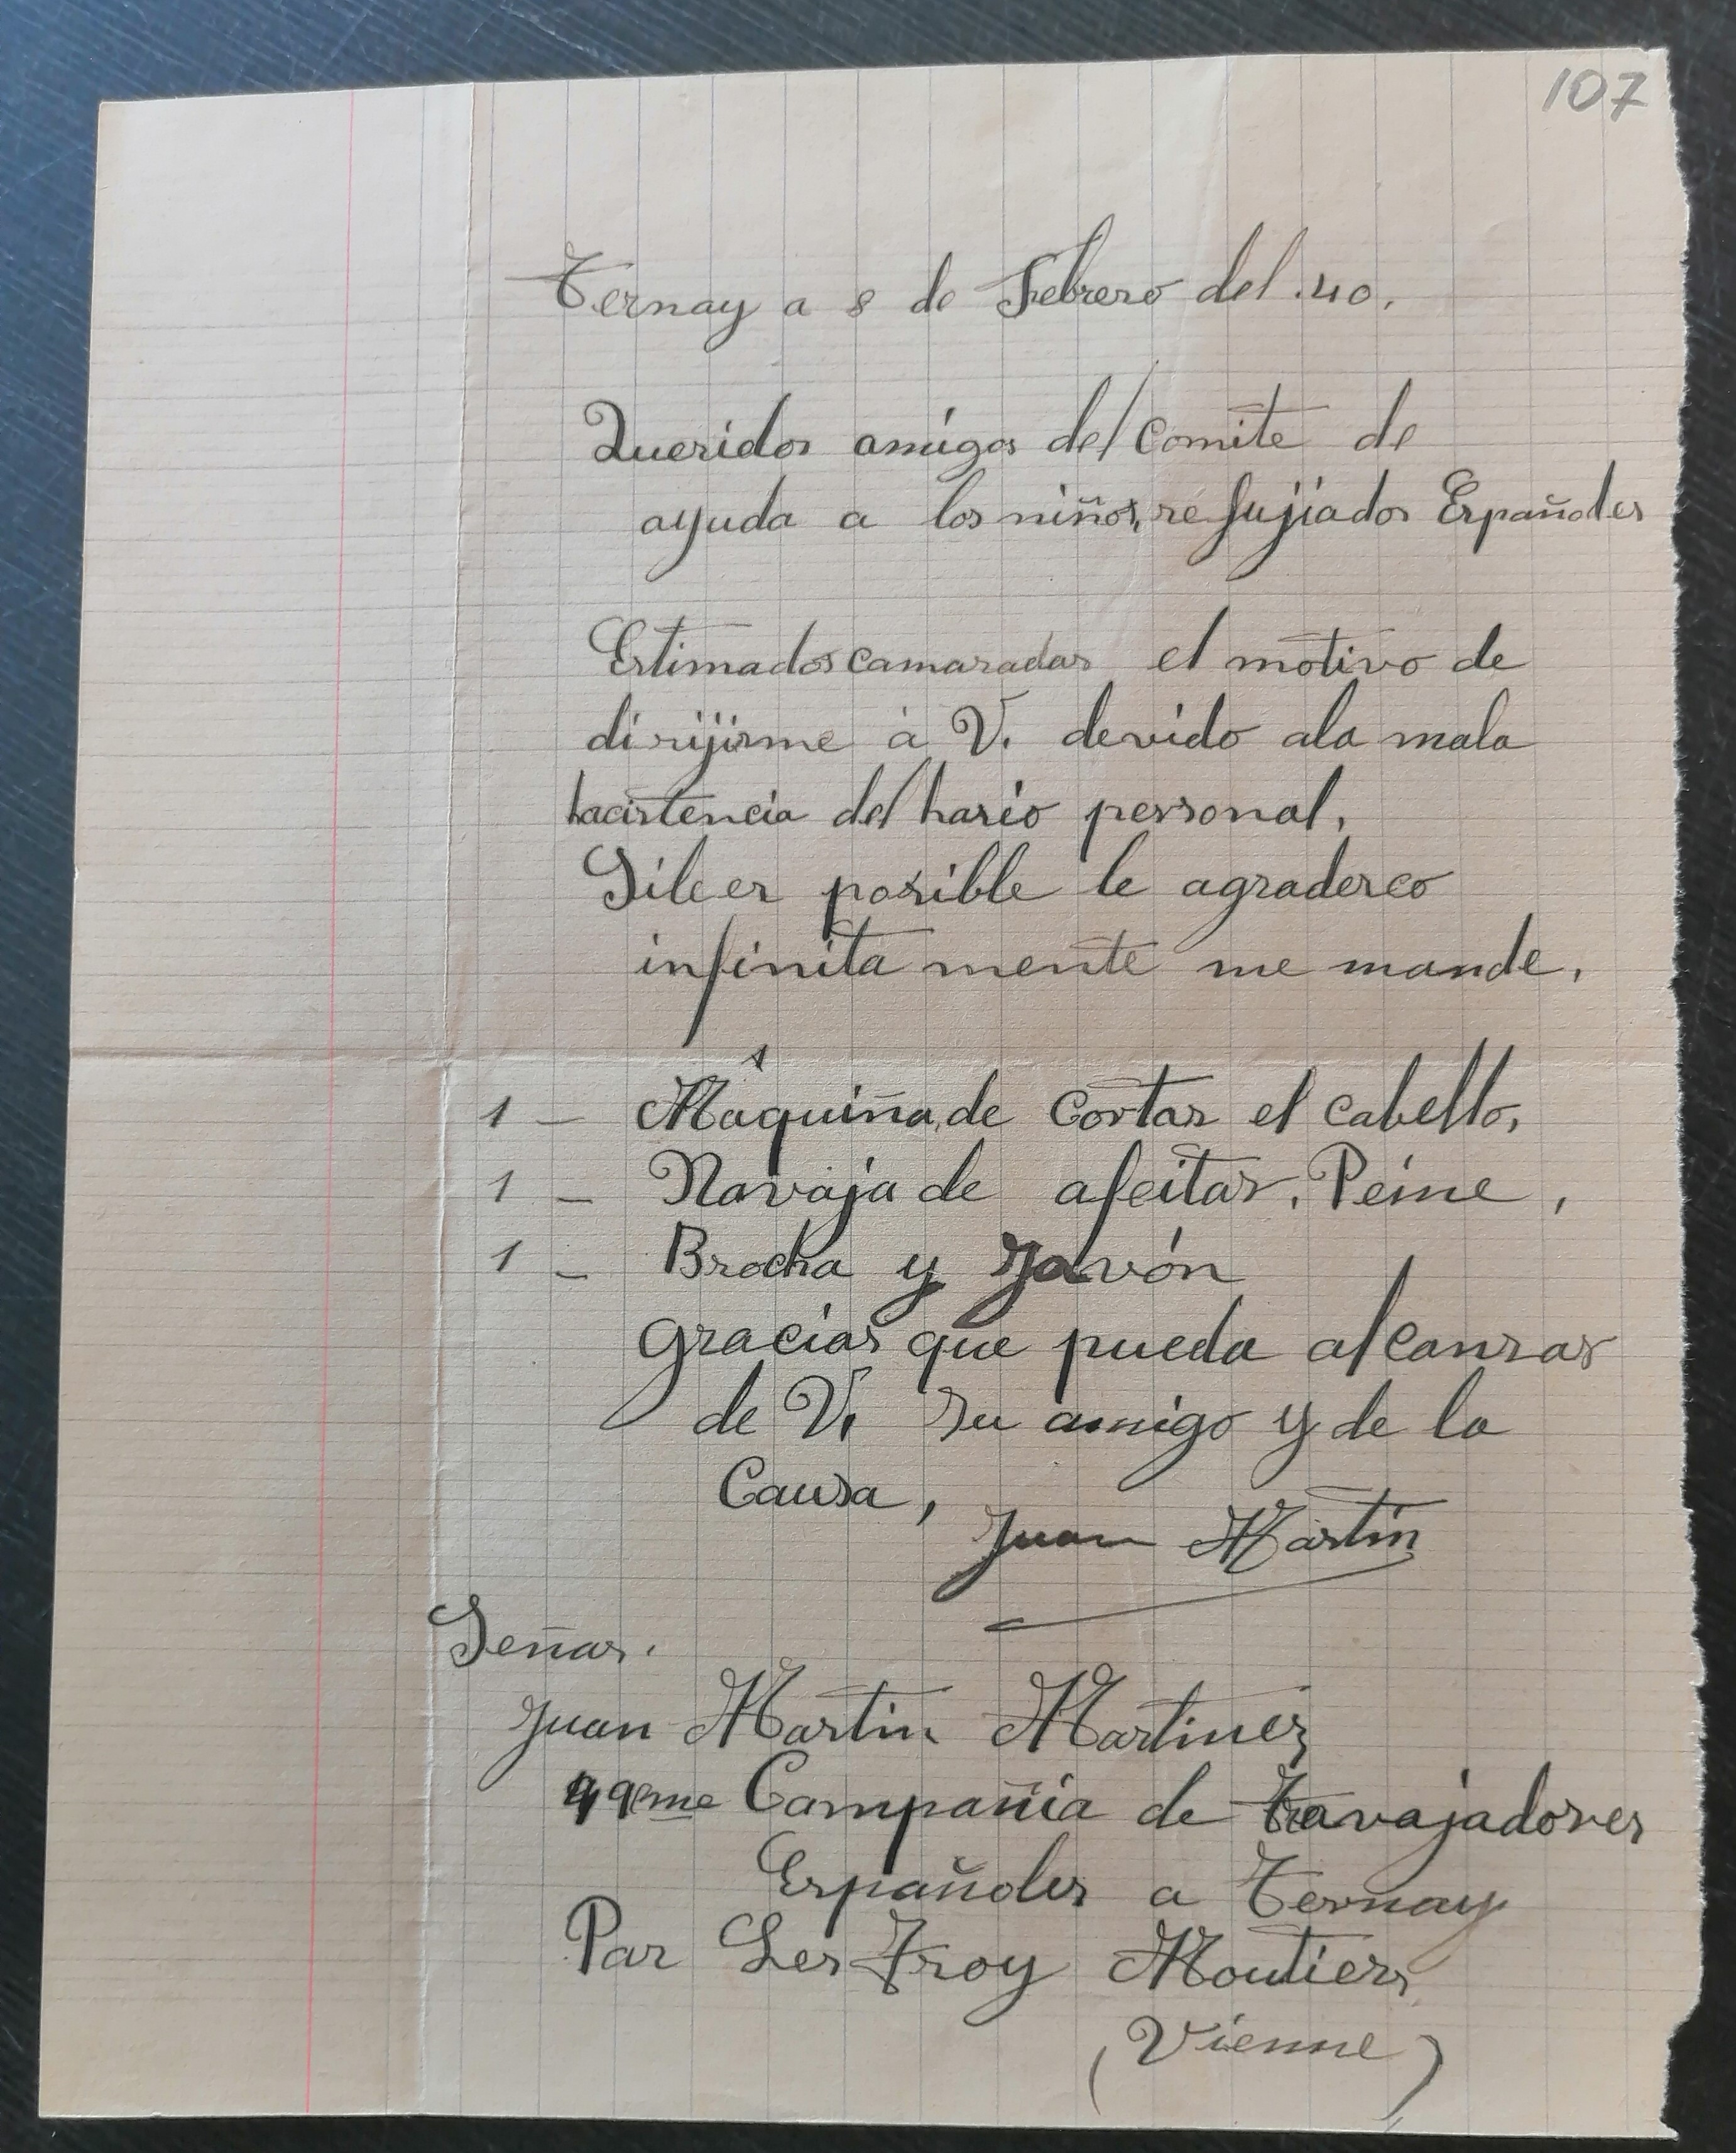 107
Ternay a 8 de Febrero del .40.
Queridos amigos del comite de
ayuda a los niños, refujiados Españoles
Estimados camaradas el motivo de
dirijirme a V. devido ala mala
hacistencia del haseo personal,
Sile es posible le agradesco
infinita mente me mande,
1 - Maquina, de cortar el cabello,
1 - Navaja de afeitar, Peine,
1 - Brocha y Javón
Gracias que pueda alcansar
de V. su amigo y de la
Causa,
Juan Martin
Señas.
Juan Martin Martinez
49eme Campañia de travajadores
Españoles a Ternay
Par Les Troy Moutiers
(Vienne)